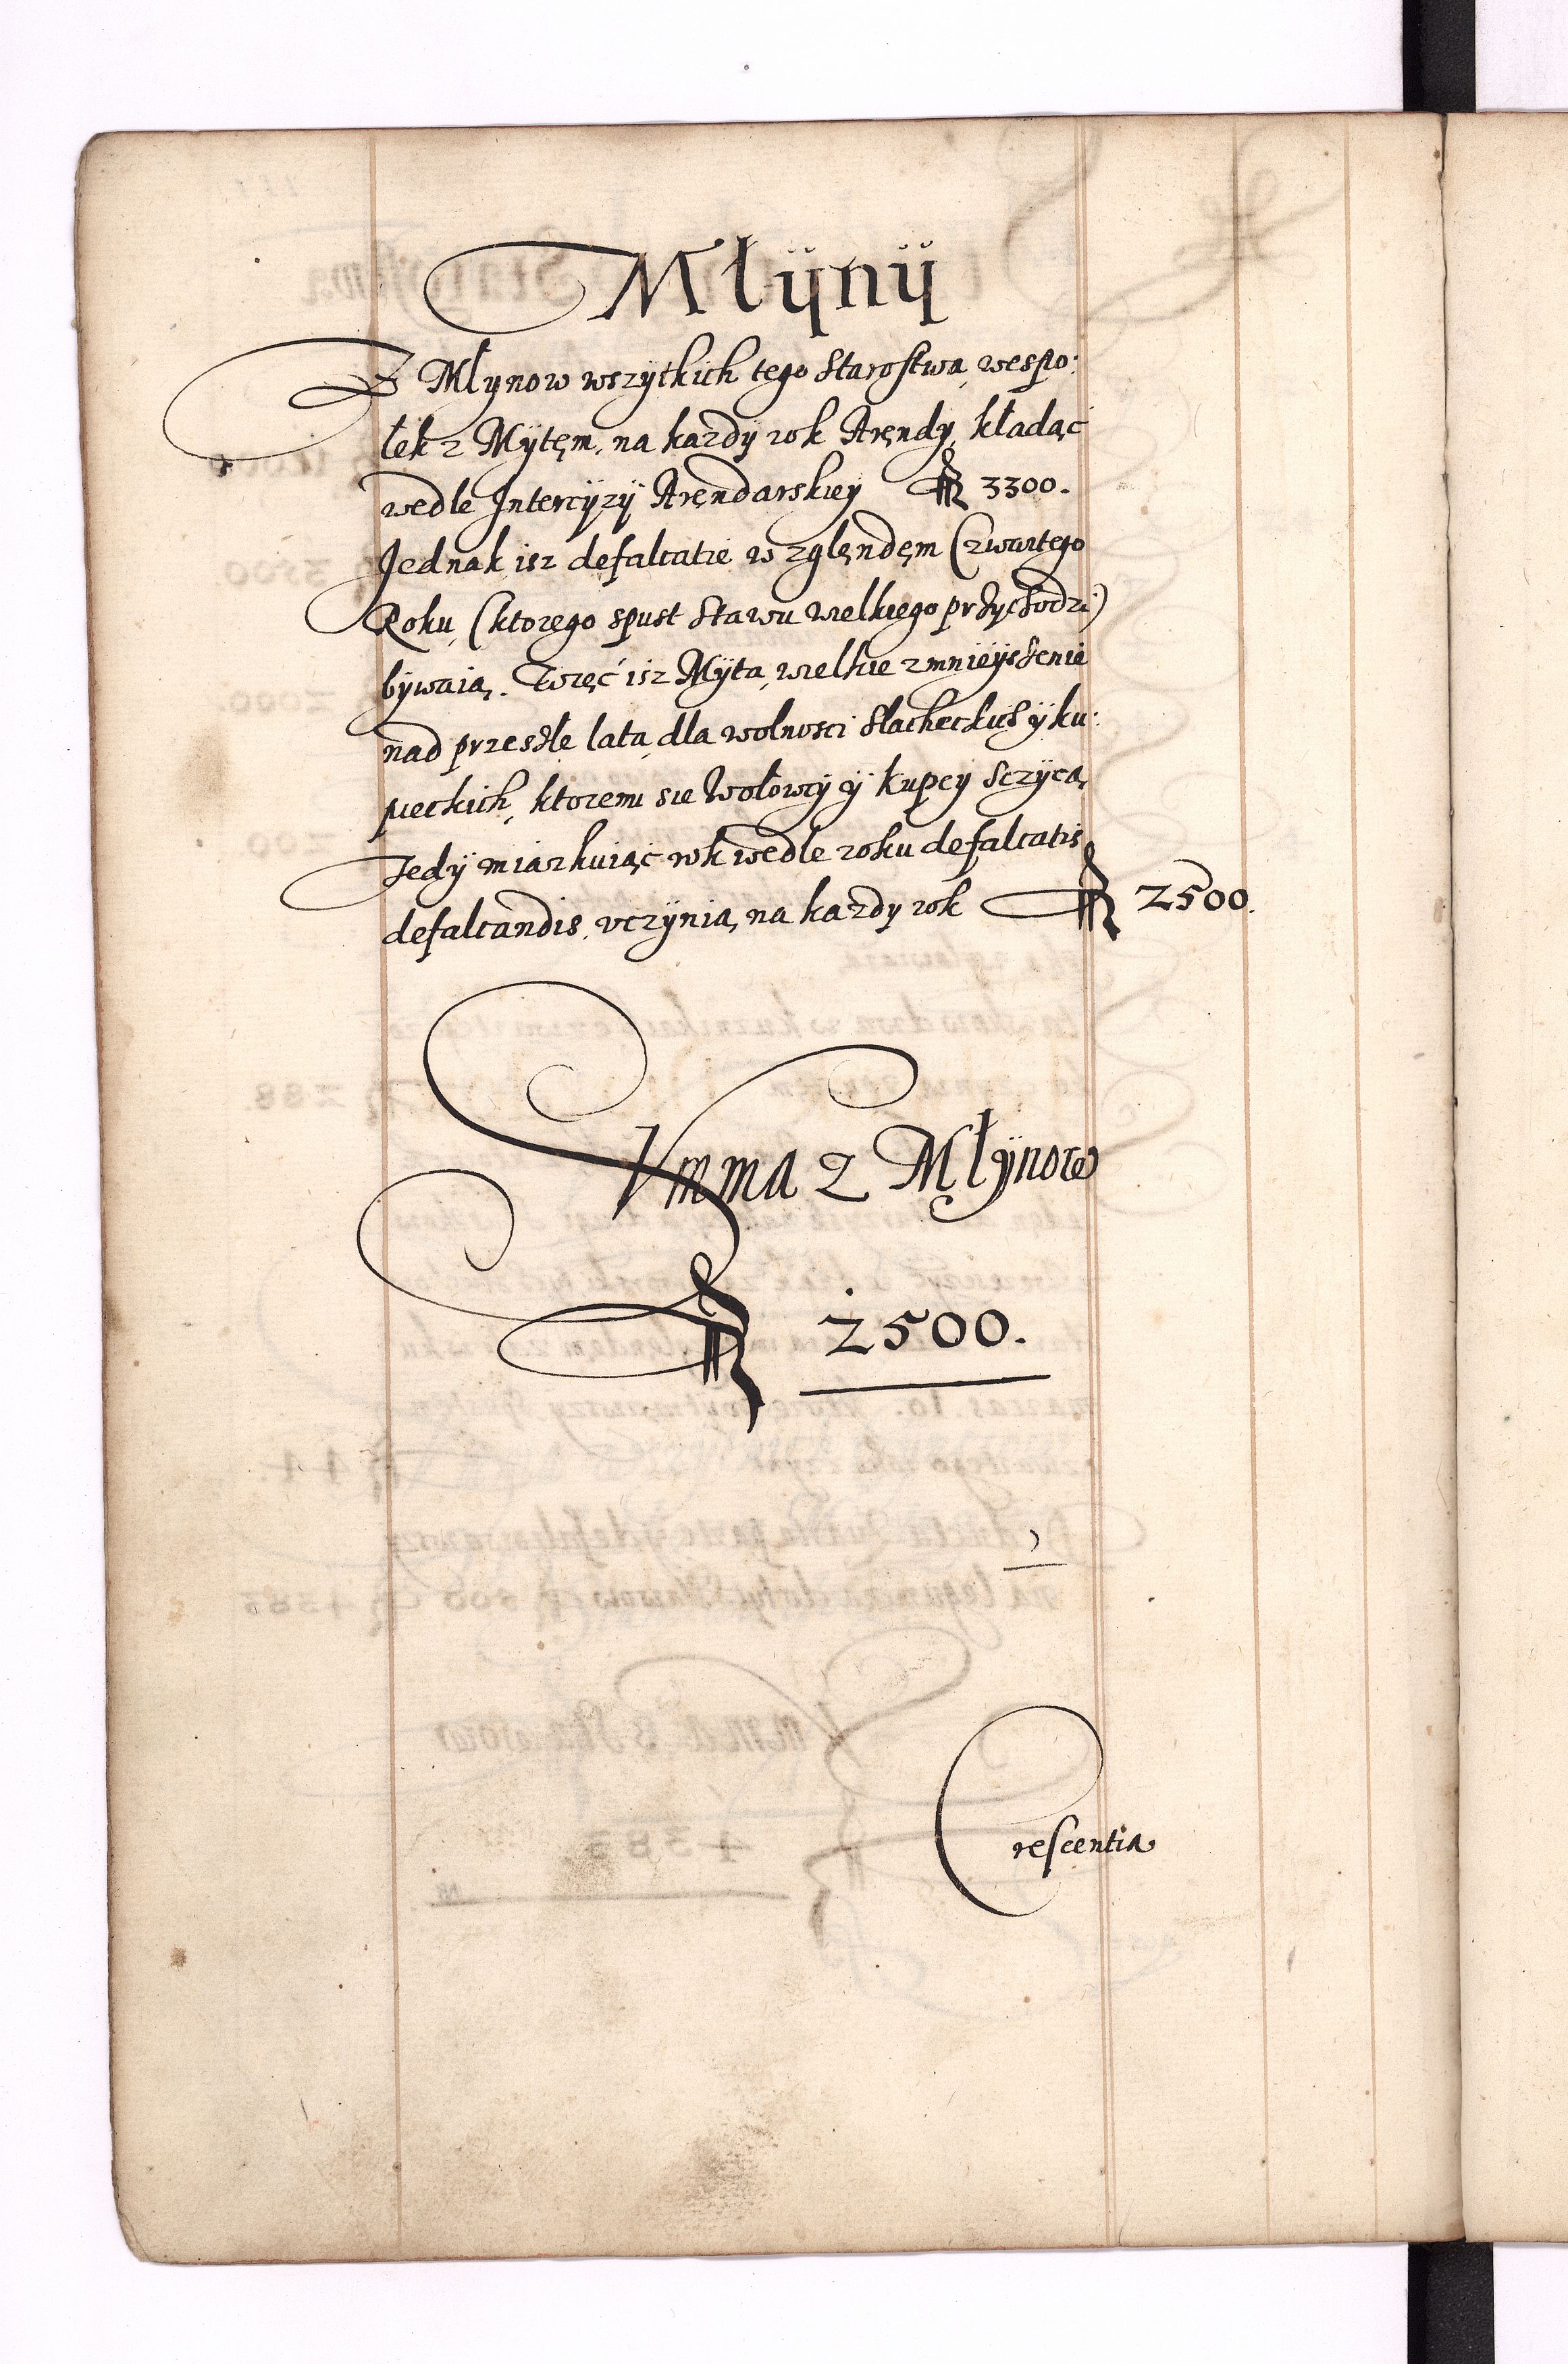 Młÿnÿ
Z Młynow wszÿtkich tego Starostwa, wespo:
łek z Mÿtęm, na kazdÿ rok Aręndy, kładąc
wedle Intercÿzÿ Aręndarskiey fl 3300.
Jednak isz defalcatie w zglęndęm Czwartego
Roku, (ktorego spust Stawu wielkiego przychodzi)
bÿwaią. Więc isz Mÿta, wielkie zmnieÿszenie
nad przeszłe lata, dla wolnosci Slacheckich ÿ ku:
pieckich, ktoremi sie Wołowcÿ ÿ kupcÿ Sczÿcą
Tedÿ miarkuiąc rok wedle roku defalcatis
defalcandis, vczÿnią, na kazdy rok fl 2500.
SVmma z Młÿnow
fl 2500.
Crescentia